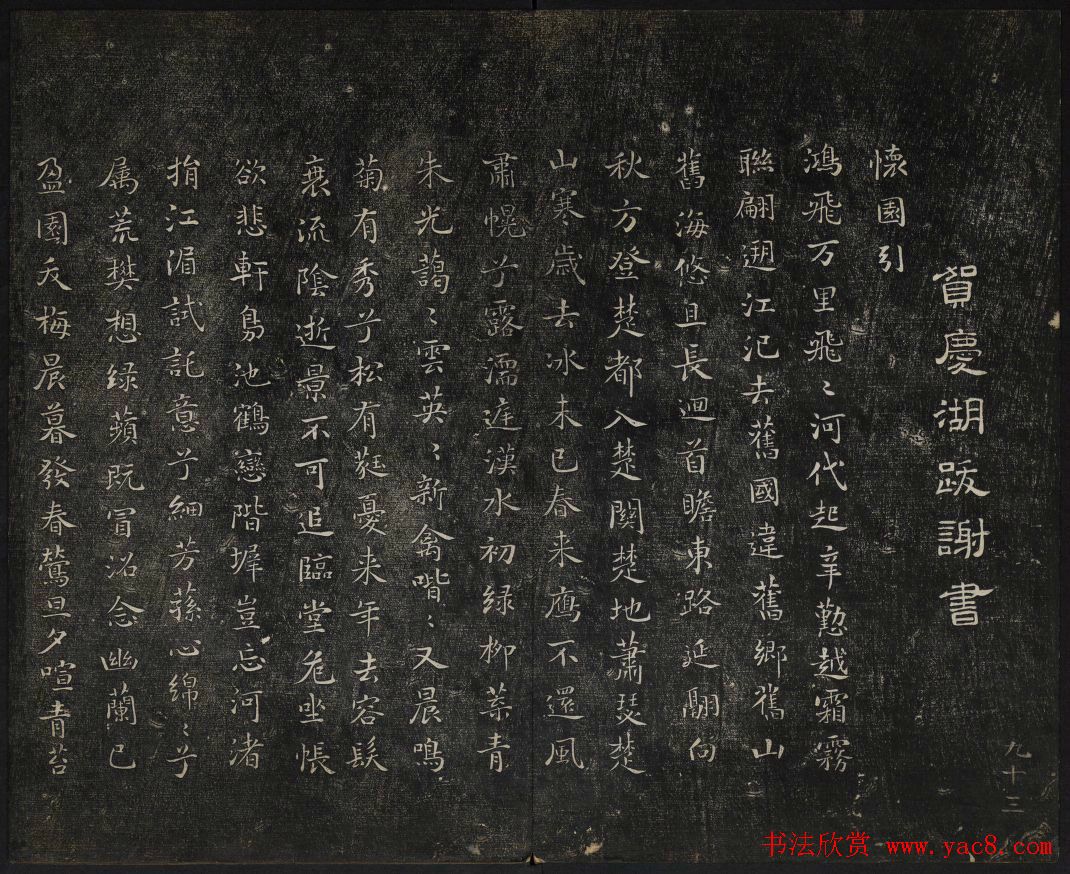 賀慶湖跋謝書
懷園引
鴻飛万里飛〻河代起辛懃越霜霧
聯翩遡江汜去舊國違舊鄉舊山
舊海悠且長迴首瞻東路延翮向
秋方登楚都入楚關楚地蕭瑟楚
山寒歳去冰未已春来鴈不還風
肅幌兮露濡庭漢水初緑柳葉青
朱光藹〻雲英〻新禽喈〻又晨鳴
菊有秀兮松有蕤憂来年去容髮
衰流陰逝景不可追臨堂危坐悵
欲悲軒鳥池鶴戀階墀豈忘河渚
捐江湄試託意兮細芳蓀心綿〻兮
属荒樊想緑蘋既冒沼念幽蘭已
盈園夭梅晨暮發春鶯旦夕喧青苔
九十三
书法欣赏 www.yac8.com